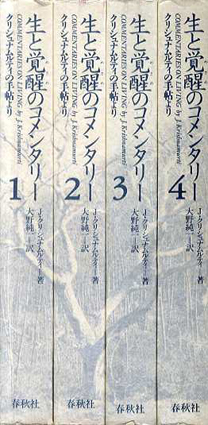 生と覚醒のコメンタリー
COMMENTARIES ON LIVING by J. Krishnamurti
クリシュナムルティの手帖より
1
J・クリシュナムルティ 著
大野純一 訳
春秋社
生と覚醒のコメンタリー
COMMENTARIES ON LIVING by J. Krishnamurti
クリシュナムルティの手帖より
2
J・クリシュナムルティ 著
大野純一 訳
春秋社
生と覚醒のコメンタリー
COMMENTARIES ON LIVING by J. Krishnamurti
クリシュナムルティの手帖より
3
J・クリシュナムルティ 著
大野純一 訳
春秋社
生と覚醒のコメンタリー
COMMENTARIES ON LIVING by J. Krishnamurti
クリシュナムルティの手帖より
4
J・クリシュナムルティ 著
大野純一 訳
春秋社